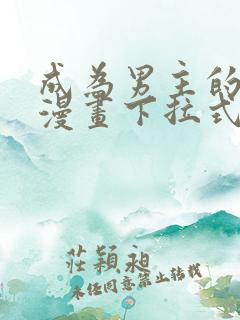 成為男主的
漫畫下拉式
莊穎昶
未经同意禁止转载